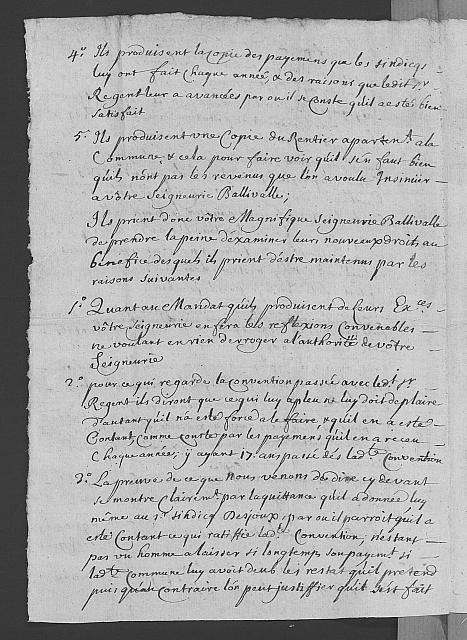 4.° Ils produisent la copie des payemens que les sindicqs
luy ont fait chaque année, & des raisons que ledit Sr
Regent leur a avancées par ou il se Conste qu'il a estés bien
satisfait
5.° Ils produisent vne Copie du Rentier apartent. a la
Commune & cela pour faire voir qu'il s'en faut bien
qu'ils n'ont pas les revenus que l'on a voulu Insinuer
a vôtre Seigneurie Ballivalle;
Ils prient donc vôtre Magnifique Seigneurie Ballivalle
de prendre la peine d'éxaminer leurs nouveaux droits, au
benefice desquels ils prient d'éstre maintenus par les
raisons suivantes
1.° Quant au Mandat qu'ils produisent de Leurs Ex.ces
vôtre seigneurie en fera les reflexions convenables
ne voulant en rien derroger a l'authorité de vôtre
Seigneurie
2.° pour ce qui regarde la convention passée avec ledt Sr
Regent ils diront que ce qui luy a pleu ne luy doit deplaire
d'autant qu'il n'a esté forcé a le faire & qu'il en a esté
Contant, comme conste par les payemens qu'il en a receu
Chaque années; y ayant 17. ans passé dés ladte Convention
3.° La preuve de ce que Nous venons de dire cy devant
se montre clairemt par la quittance qu'il a donnée luy
même au Sr sindicq Desjoux, par ou il parroit qu'il a
esté Contant ce qui ratiffie ladte Convention, n'estant
pas vn homme a laisser si longtemps son payemt si
ladte Commune luy avoit deub les restat qu'il pretend
puis qu'au Contraire l'on peut justiffier qu'il s'est fait